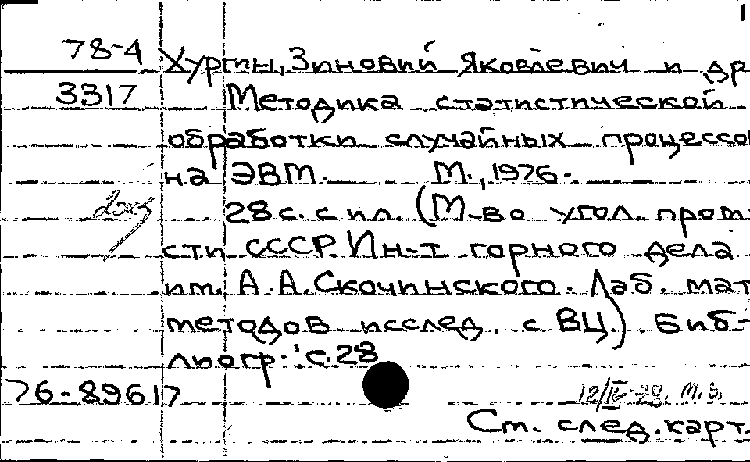 78-4 Хургин, Зиновий Яковлевич и др
3317 Методика статистической
обработки случайных процессо
на ЭВМ. М., 1976.
28 с. с ил. (М-во угол. пром
сти СССР. Ин-т горного дела
им. А. А. Скочинского. Лаб. мат
методов исслед. с ВЦ.) Биб-
лиогр.: с. 28
76-89617
12/IV-78. М.З.
См. след. карт.